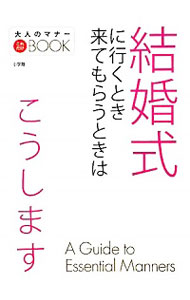 大人のマナー
BOOK
小学館
結婚式
に行くとき
来てもらうときは
こうします
A Guide to
Essential Manners